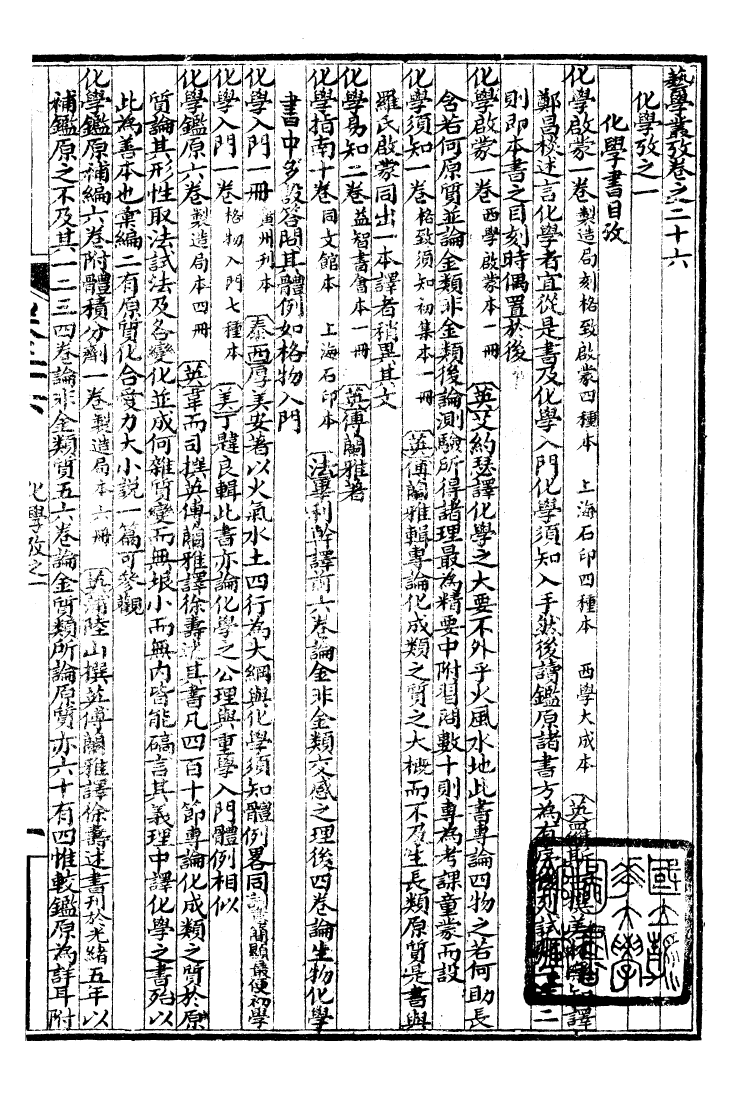 藝學叢攷卷之二十六
化學攷之一
化學書目攷
化學啟蒙一卷 製造局刻格致啟蒙四種本 上海石印四種本 西學大成本 英羅斯 撰美 譯
鄭昌棪述言化學者宜從是書及化學入門化學須知入手然後讀鑑原諸書方為有序 二
則即本書之目刻時偶置於後
化學啟蒙一卷 西學啟蒙本一冊 英艾約瑟譯化學之大要不外乎火風水地此書專論四物之若何助長
含若何原質並論金類非金類後論測驗所得諸理最為精要中附習問數十則專為考課童蒙而設
化學須知一卷 格致須知初集本一冊 英傅蘭雅輯專論化成類之質之大概而不及生長類原質是書與
羅氏啟蒙同出一本譯者稍異其文
化學易知二卷 益智書會本一冊 英傅蘭雅著
化學指南十卷 同文館本 上海石印本 法畢利幹譯前六卷論金非金類交感之理後四卷論生物化學
書中多設答問其體例如格物入門
化學入門一冊 廣州刊本 泰西厚美安著以火氣水土四行為大綱與化學須知體例畧同 簡顯最便初學
化學入門一卷 格物入門七種本 美丁韙良輯此書亦論化學之公理與重學入門體例相似
化學鑑原六卷 製造局本四冊 英韋而司撰英傅蘭雅譯徐壽述其書凡四百十節專論化成類之質於原
質論其形性取法試法及各變化並成何雜質變而無垠小而無內皆能确言其義理中譯化學之書殆以
此為善本也彙編二有原質化合愛力大小說一篇可參觀
化學鑑原補編六卷附體積分劑一卷 製造局本六冊 英蒲陸山撰英傅蘭雅譯徐壽述書刊於光緒五年以
補鑑原之不及其一二三四卷論非金類質五六卷論金質類所論原質亦六十有四惟較鑑原為詳耳附
化學攷之一
一
國立 大學